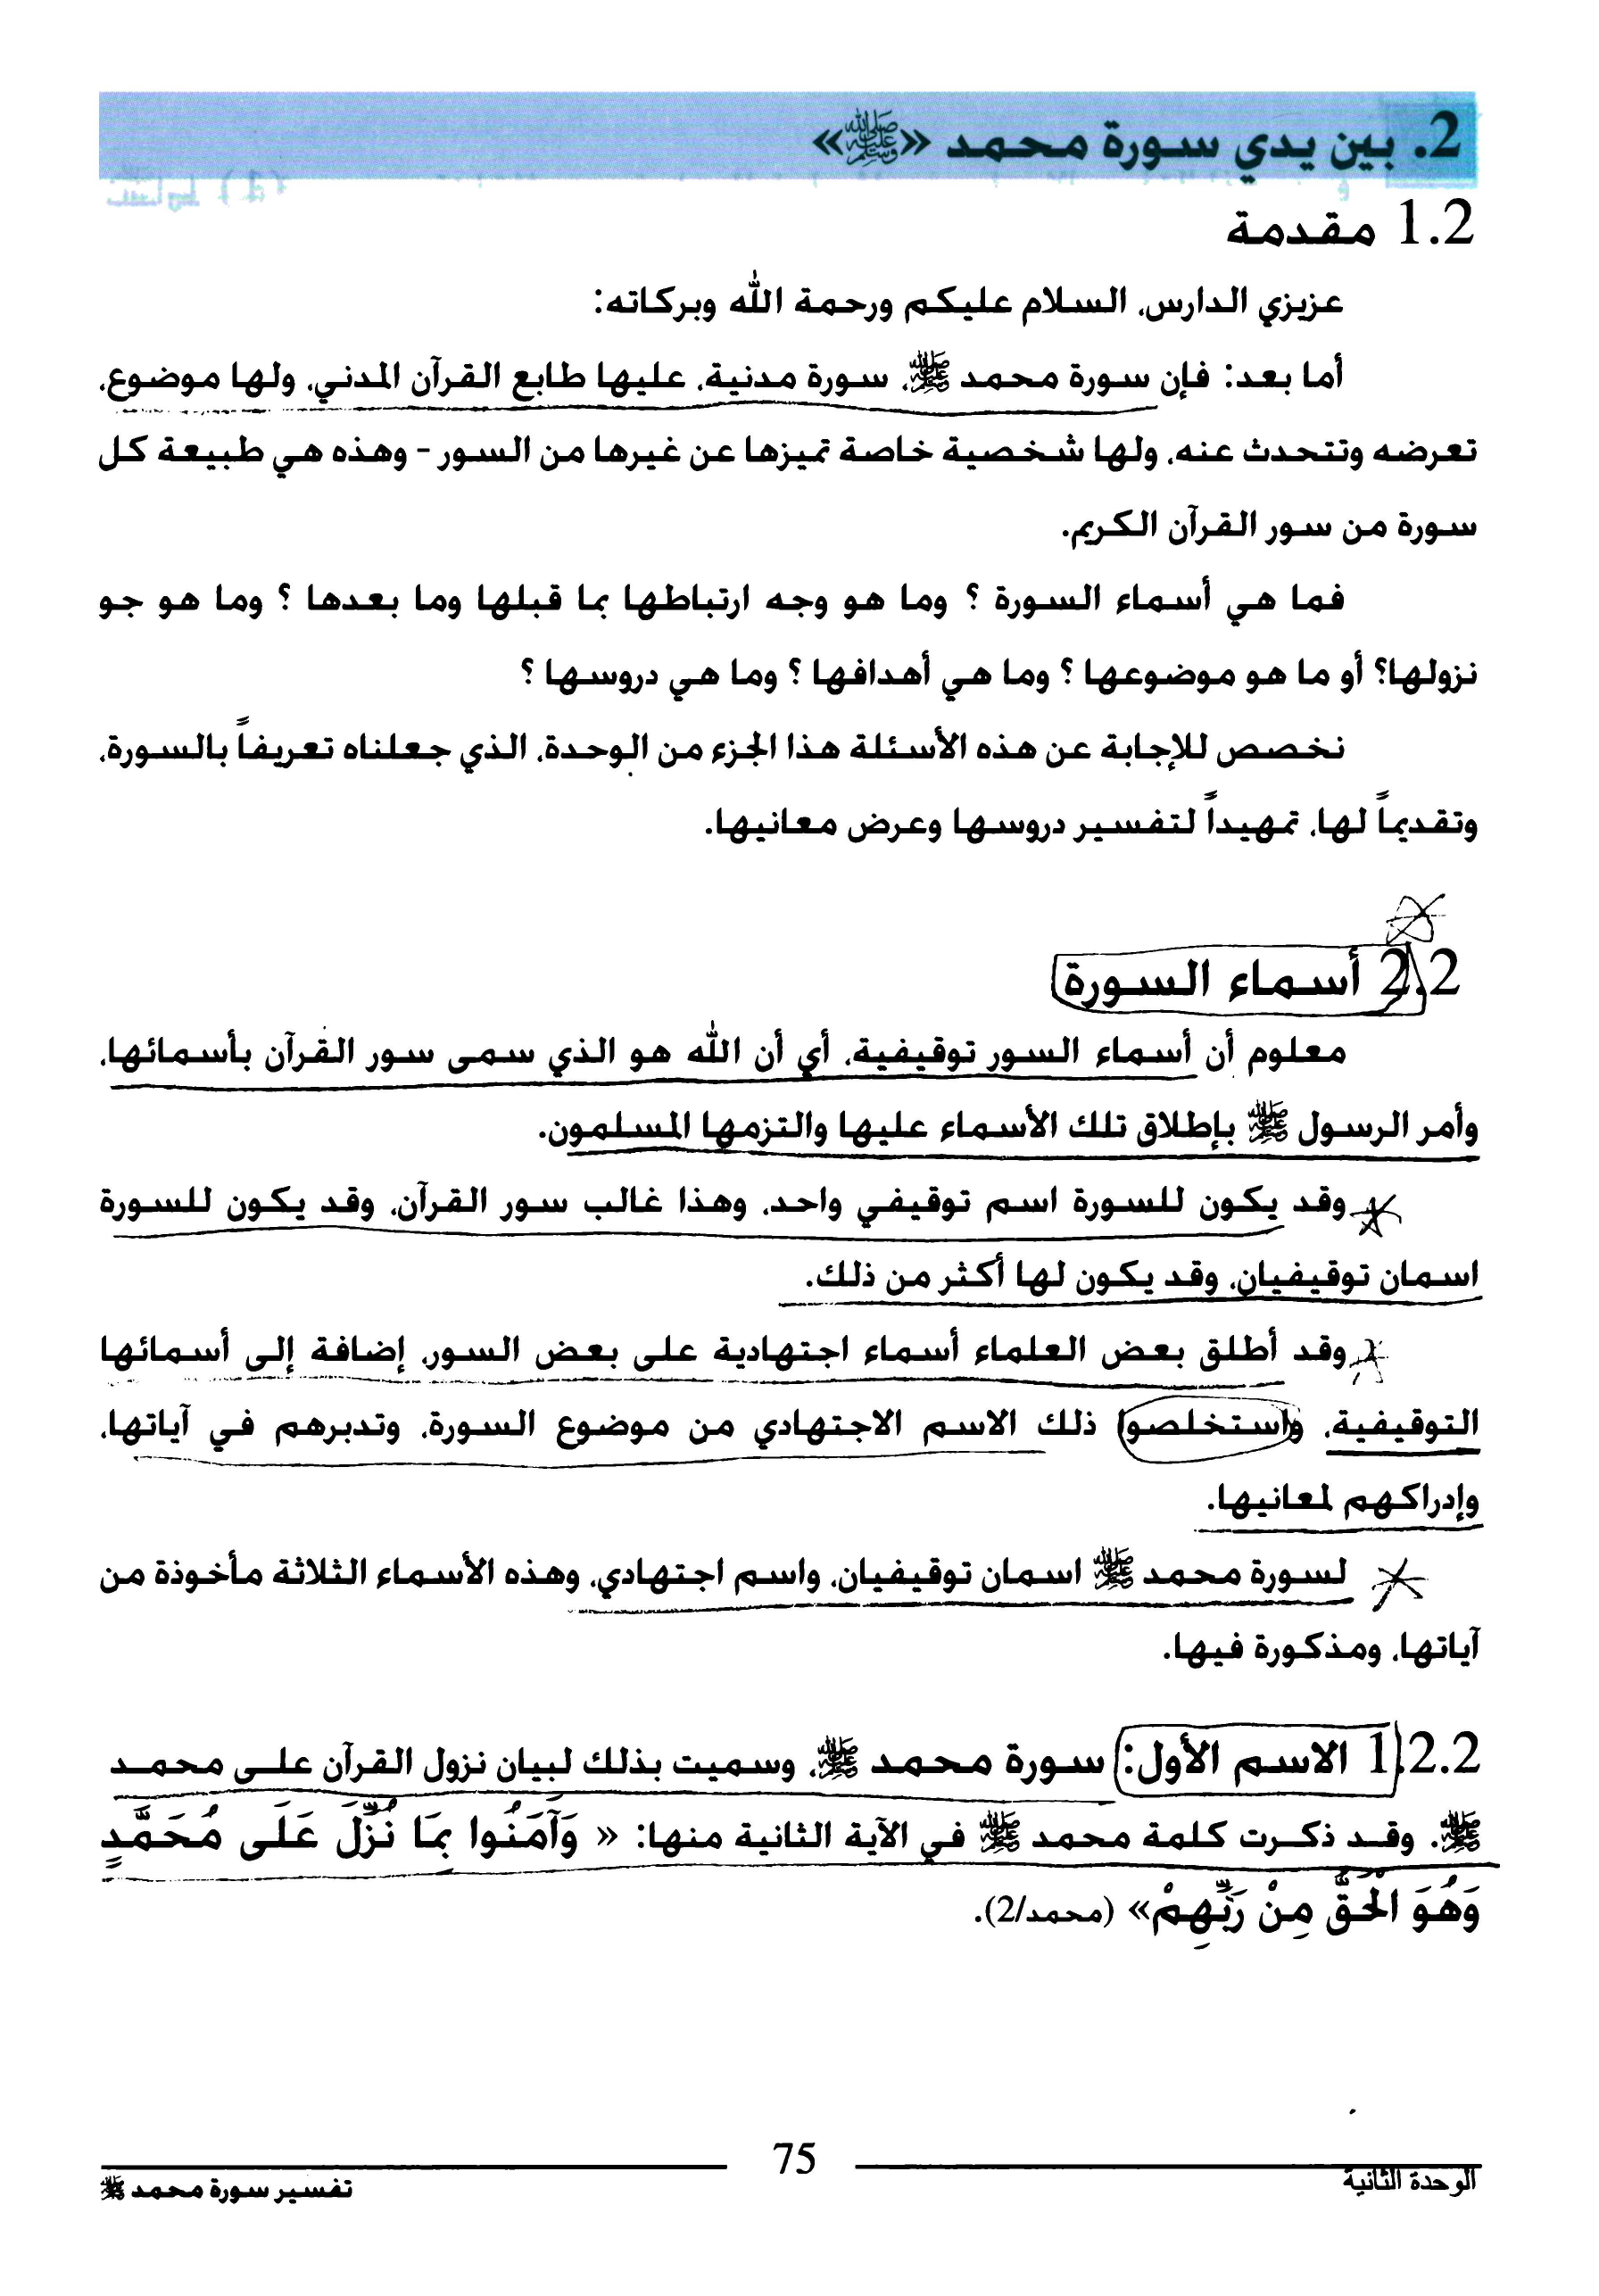 2. بين يدي سورة محمد «ﷺ»
1.2 مقدمة
عزيزي الدارس، السلام عليكم ورحمة الله وبركاته:
أما بعد: فإن سورة محمد ﷺ، سورة مدنية، عليها طابع القرآن المدني، ولها موضوع،
تعرضه وتتحدث عنه، ولها شخصية خاصة تميزها عن غيرها من السور - وهذه هي طبيعة كل
سورة من سور القرآن الكريم.
فما هي أسماء السورة ؟ وما هو وجه ارتباطها بما قبلها وما بعدها ؟ وما هو جو
نزولها؟ أو ما هو موضوعها ؟ وما هي أهدافها ؟ وما هي دروسها ؟
نخصص للإجابة عن هذه الأسئلة هذا الجزء من الوحدة، الذي جعلناه تعريفاً بالسورة،
وتقديماً لها، تمهيداً لتفسير دروسها وعرض معانيها.
2.2 أسماء السورة
معلوم أن أسماء السور توقيفية، أي أن الله هو الذي سمى سور القرآن بأسمائها،
وأمر الرسول ﷺ بإطلاق تلك الأسماء عليها والتزمها المسلمون.
وقد يكون للسورة اسم توقيفي واحد، وهذا غالب سور القرآن، وقد يكون للسورة
اسمان توقيفيان، وقد يكون لها أكثر من ذلك.
وقد أطلق بعض العلماء أسماء اجتهادية على بعض السور، إضافة إلى أسمائها
التوقيفية، واستخلصوا ذلك الاسم الاجتهادي من موضوع السورة، وتدبرهم في آياتها،
وإدراكهم لمعانيها.
لسورة محمد ﷺ اسمان توقيفيان، واسم اجتهادي، وهذه الأسماء الثلاثة مأخوذة من
آياتها، ومذكورة فيها.
1.2.2 الاسم الأول: سورة محمد ﷺ، وسميت بذلك لبيان نزول القرآن على محمد
ﷺ. وقد ذكرت كلمة محمد ﷺ في الآية الثانية منها: « وَآمَنُوا بِمَا نُزِّلَ عَلَى مُحَمَّدٍ
وَهُوَ الْحَقُّ مِنْ رَبِّهِمْ» (محمد/2).
75
الوحدة الثانية
تفسير سورة محمد ﷺ